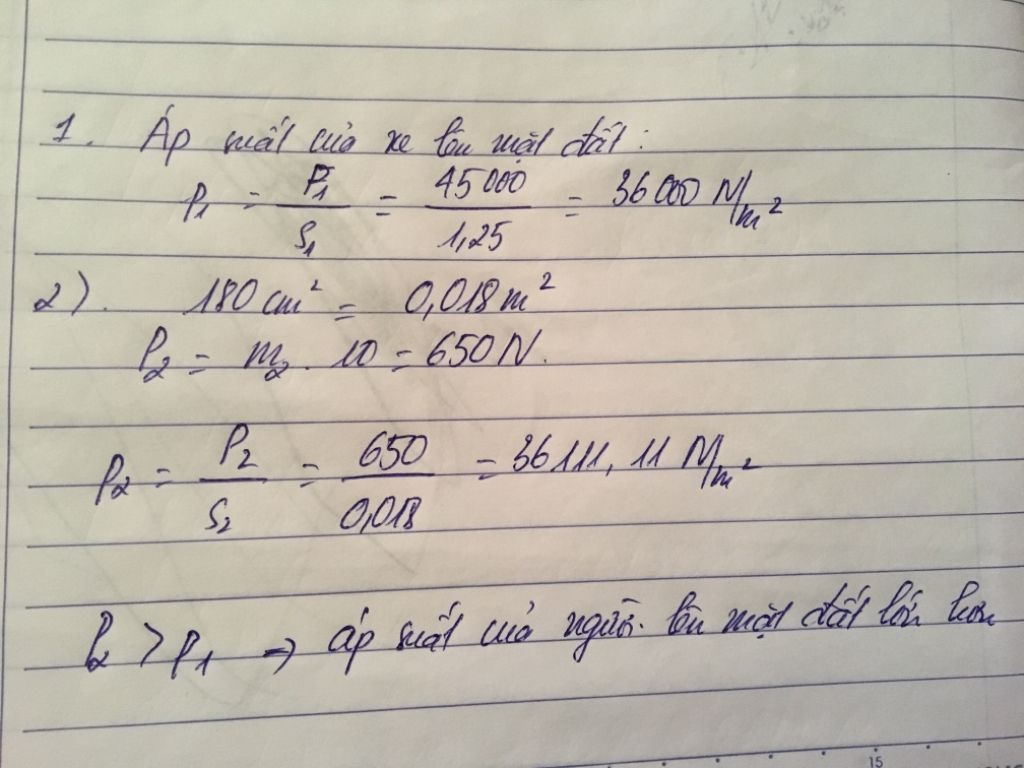 1. Áp suất của xe lên mặt đất:
p₁ = P₁/S₁ = 45000/1,25 = 36000 N/m²
2). 180 cm² = 0,018 m²
P₂ = m₂. 10 = 650 N.
p₂ = P₂/S₂ = 650/0,018 = 36111,11 N/m²
p₂ > p₁ → áp suất của người lên mặt đất lớn hơn
15